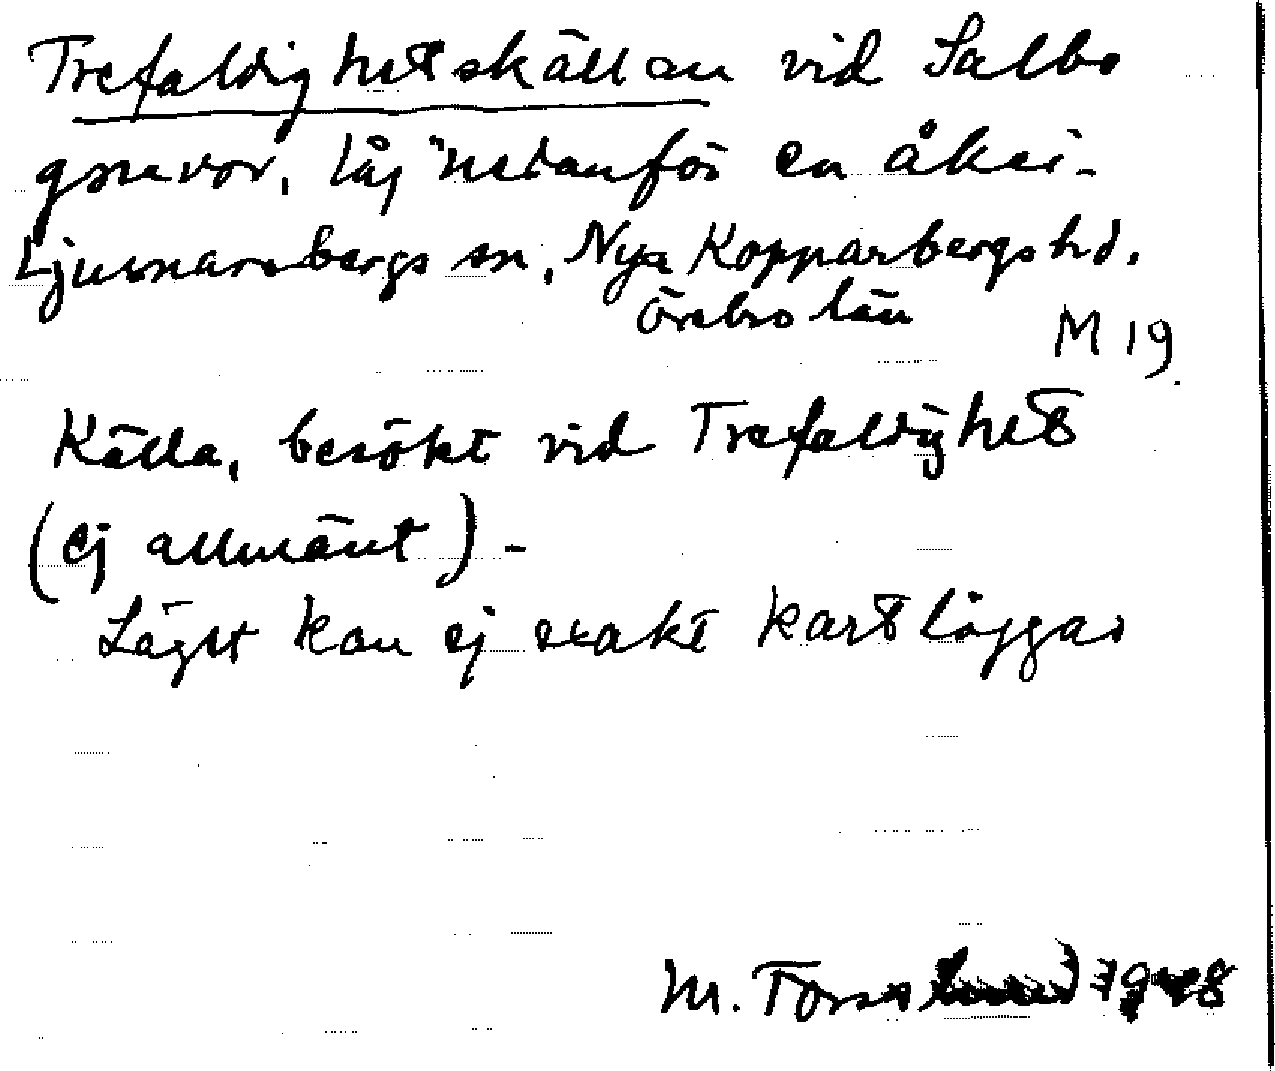 Trefaldighetskällan vid Salbo
gruvor, låg "nedanför en åker-
Ljusnarsbergs sn, Nya Kopparbergs hd.
Örebro län
M 19
Källa, besökt vid Trefaldighets
(ej allmänt) -
Läget kan ej exakt kartläggas
M. 1948